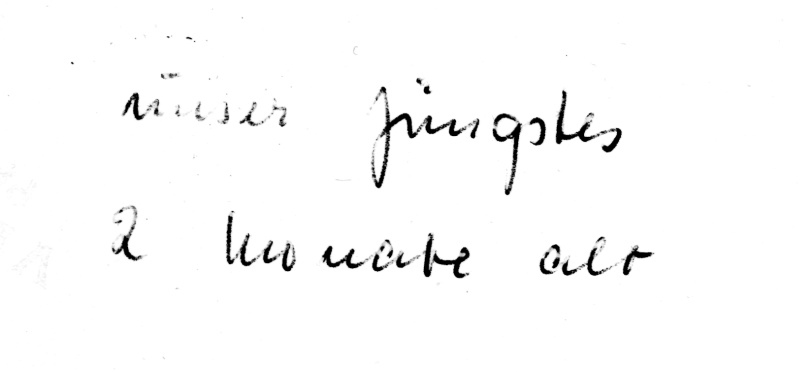 unser jüngstes
2 Monate alt